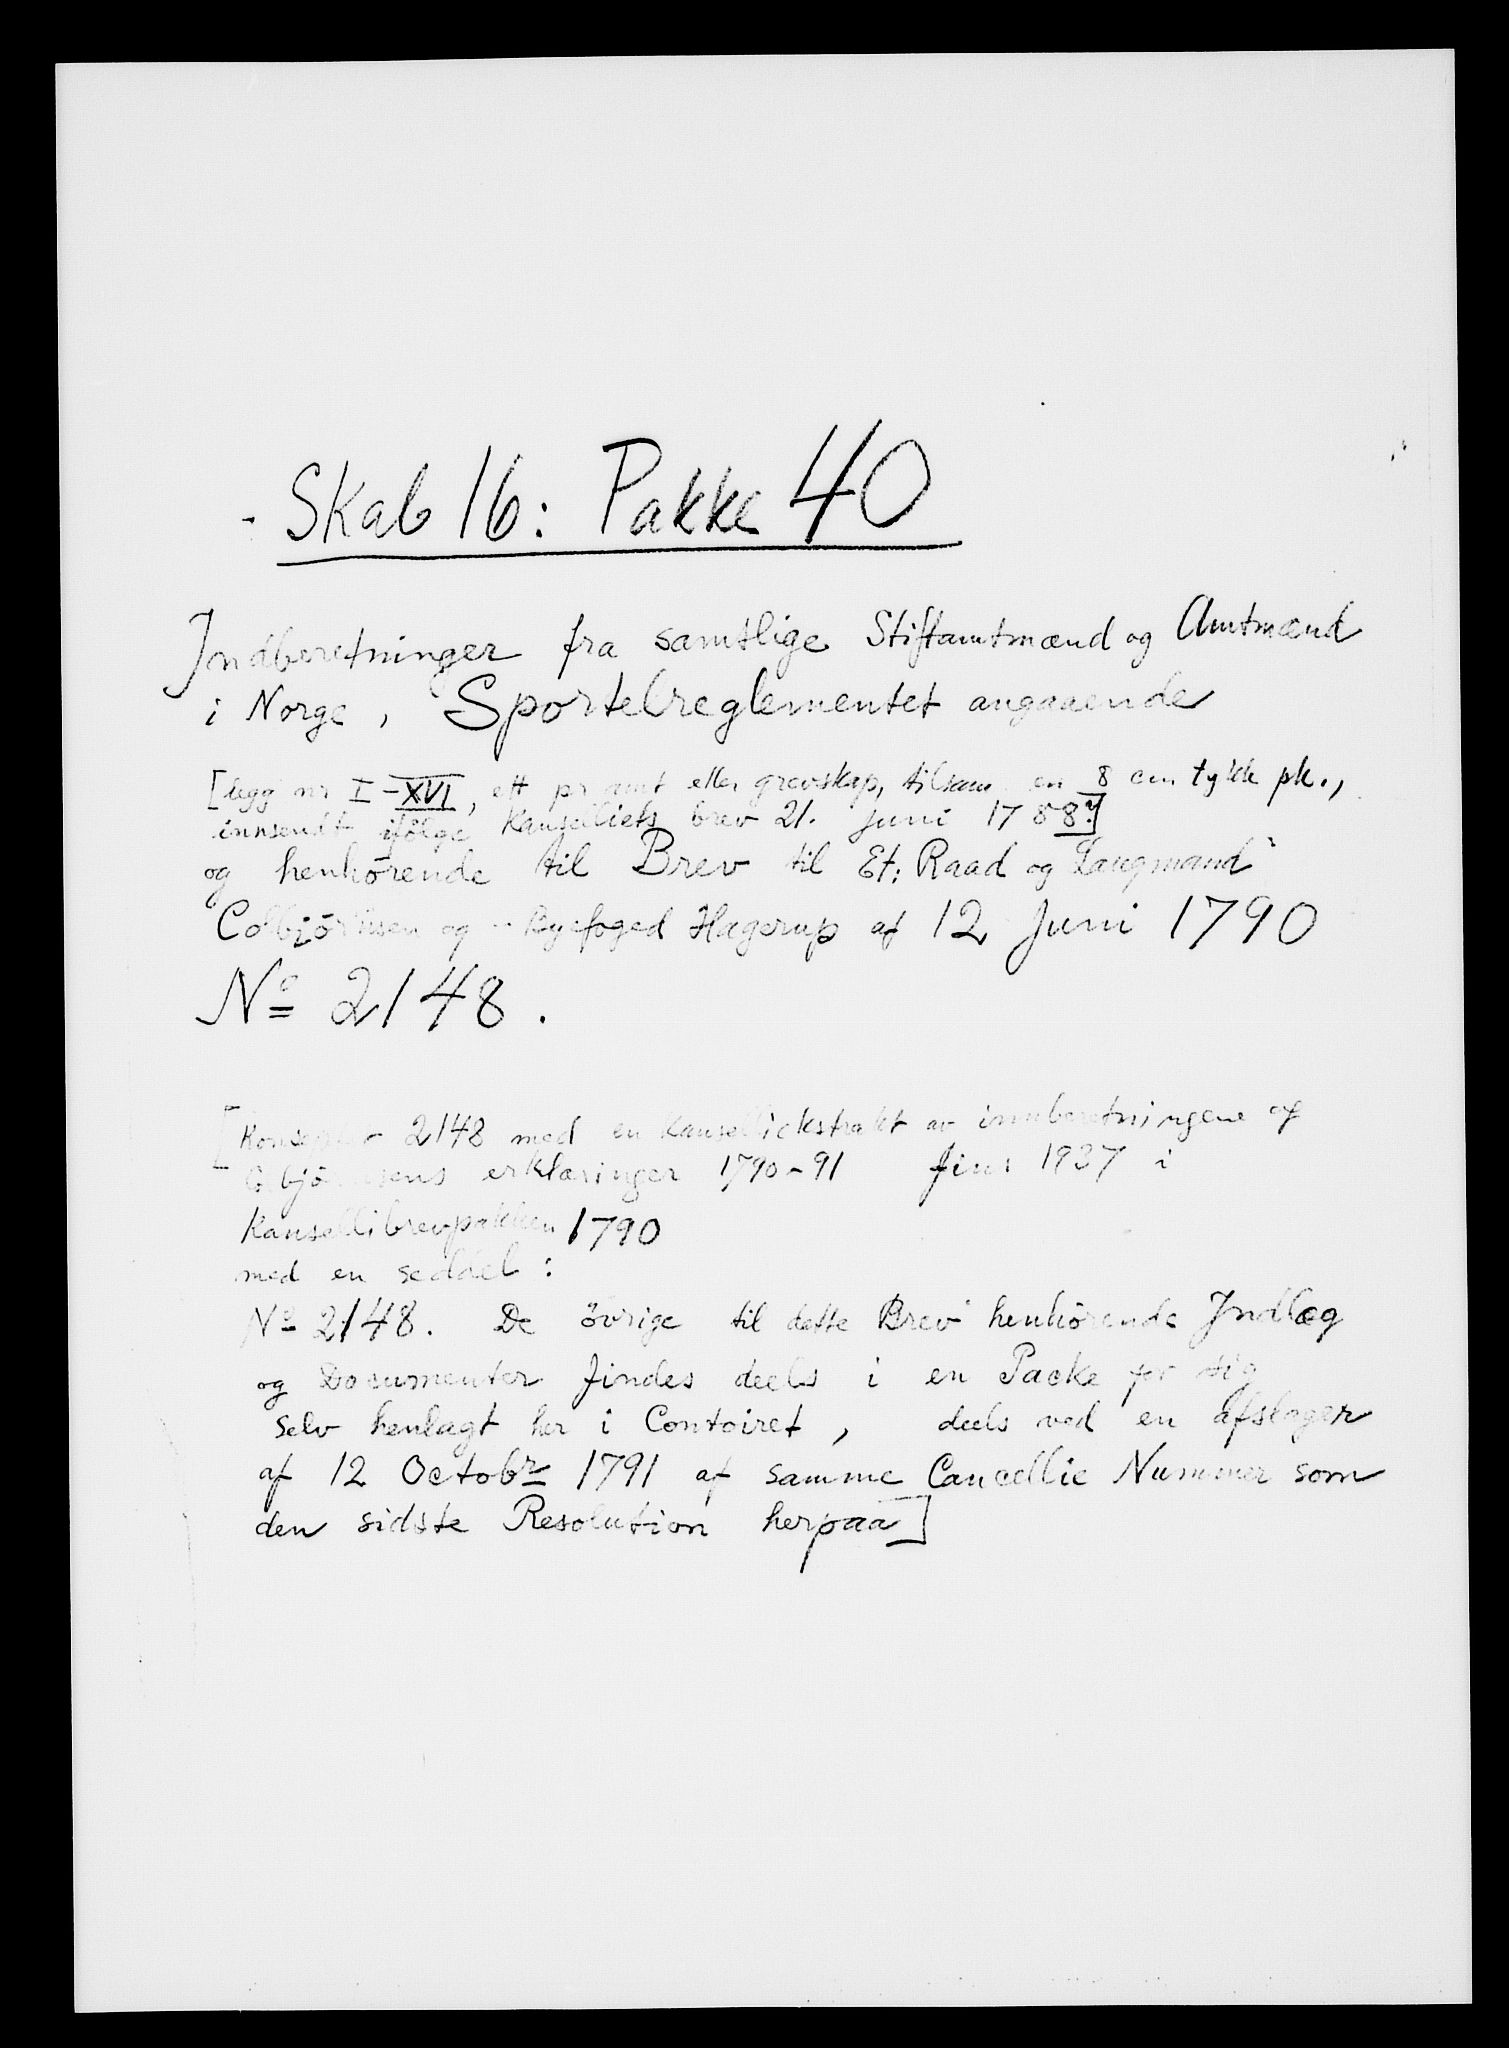 - Skab 16: Pakke 40
Indberetninger fra samtlige Stiftamtmænd og Amtmænd
i Norge, Sportelreglementet angaaende
[legg nr I-XVI, ett pr amt eller grevskap, tilsam. en 8 cm tykk pk.,
innsendt ifölge Kanselliets brev 21. juni 1788.]
og henhörende til Brev til Et: Raad og Laugmand
Colbjörnsen og Byefoged Hagerup af 12 Juni 1790
No 2148.
[Konsept 2148 med en Kanselliekstrakt av innberetningene og
Colbjörnsens erklæringer 1790-91 fins 1937 i
Kansellibrevpakken 1790
med en seddel:
No 2148. De övrige til dette Brev henhörende Indlæg
og Documenter findes deels i en Packe for sig
selv henlagt her i Contoiret, deels ved en
af 12 Octobr 1791 af samme Cancellie Nummer som
den sidste Resolution herpaa]